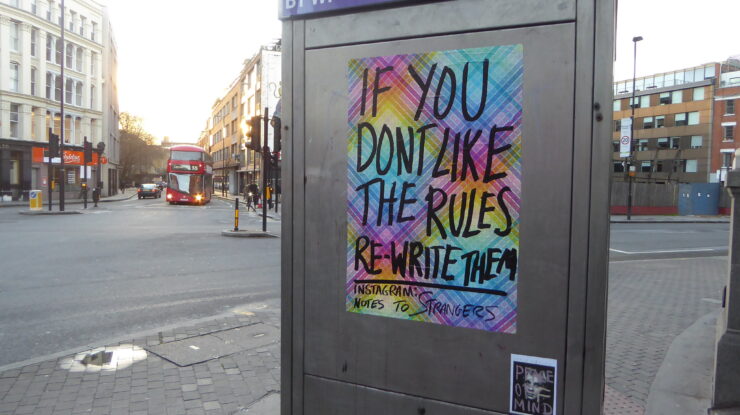 IF YOU
DONT LIKE
THE RULES
RE-WRITE THEM
INSTAGRAM:
NOTES TO STRANGERS